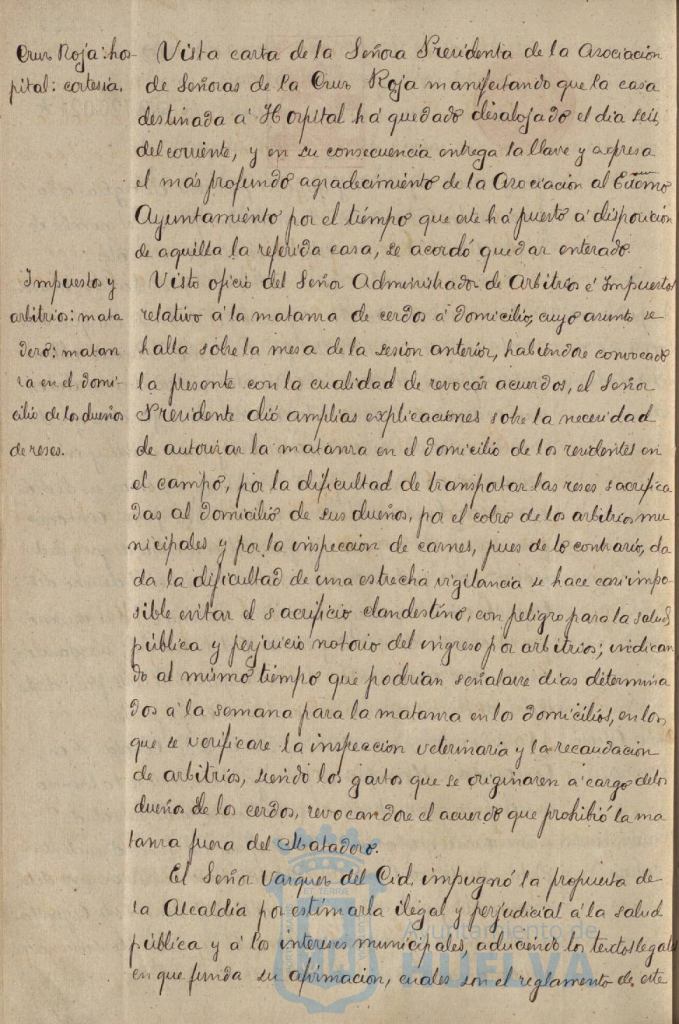 Cruz Roja: hos-
pital: cortesía.
Vista carta de la Señora Presidenta de la Asociación
de Señoras de la Cruz Roja manifestando que la casa
destinada á Hospital há quedado desalojado el dia seis
del corriente, y en su consecuencia entrega la llave y expresa
el más profundo agradecimiento de la Asociación al Excmo
Ayuntamiento por el tiempo que este há puesto á disposición
de aquella la referida casa, se acordó quedar enterado.
Impuestos y
arbitrios: mata
dero: matan
za en el domi-
cilio de los dueños
de reses.
Visto oficio del Señor Administrador de Arbitrios é Impuestos
relativo á la matanza de cerdos á domicilio, cuyo asunto se
halla sobre la mesa de la sesión anterior, habiéndose convocado
la presente con la cualidad de revocar acuerdos, el Señor
Presidente dió amplias explicaciones sobre la necesidad
de autorizar la matanza en el domicilio de los residentes en
el campo, por la dificultad de transportar las reses sacrifica
das al domicilio de sus dueños, por el cobro de los arbitrios mu
nicipales y por la inspección de carnes, pues de lo contrario, da
da la dificultad de una estrecha vigilancia se hace casi impo
sible evitar el sacrificio clandestino, con peligro para la salud
pública y perjuicio notorio del ingreso por arbitrios; indican
do al mismo tiempo que podrían señalarse dias determina
dos á la semana para la matanza en los domicilios, en los
que se verificare la inspección veterinaria y la recaudación
de arbitrios, siendo los gastos que se originaren á cargo de los
dueños de los cerdos, revocandose el acuerdo que prohibió la ma
tanza fuera del Matadero.
El Señor Vazquez del Cid, impugnó la propuesta de
la Alcaldía por estimarla ilegal y perjudicial á la salud
pública y á los intereses municipales, aduciendo los textos legales
en que funda su afirmación, cuales son el reglamento de este
Ayuntamiento de
HUELVA